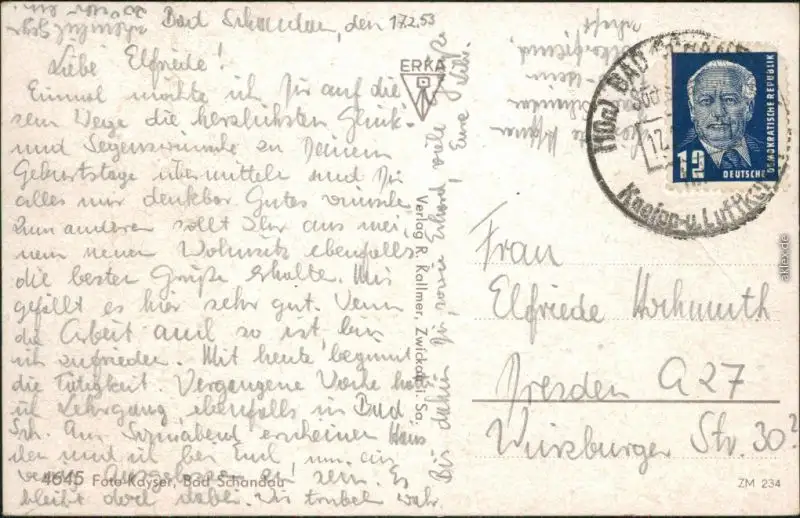 Bad Schandau, den 17.2.53
Liebe Elfriede!
Einmal möchte ich Dir auf die
sem Wege die herzlichsten Glück-
und Segenswünsche zu Deinem
Geburtstage übermitteln und Dir
alles nur denkbar Gutes wünsche
Zum anderen sollt Ihr aus mei
nem neuen Wohnsitz ebenfalls
die besten Grüße erhalte. Mir
gefällt es hier sehr gut. Wenn
die Arbeit auch so ist, bin
ich zufrieden. Mit heute beginnt
die Tätigkeit. Vergangene Woche hatte
ich Lehrgang, ebenfalls in Bad
Sch. Am Sonnabend erscheinen Hans
und ich bei Euch, um
zu sein. Es
bleibt doch dabei. Wir
Bis dahin Dir, sowie Erhard, viele Grüße
Eure
ERKA
Verlag R. Kallmer, Zwickau i. Sa.
4645 Foto Kayser, Bad Schandau
ZM 234
(10a) BAD SCHANDAU
17.
Kneipp-u. Luftkur
12
DEUTSCHE
DEMOKRATISCHE REPUBLIK
Frau
Elfriede Hochmuth
Dresden A 27
Würzburger Str. 30
aklex.de